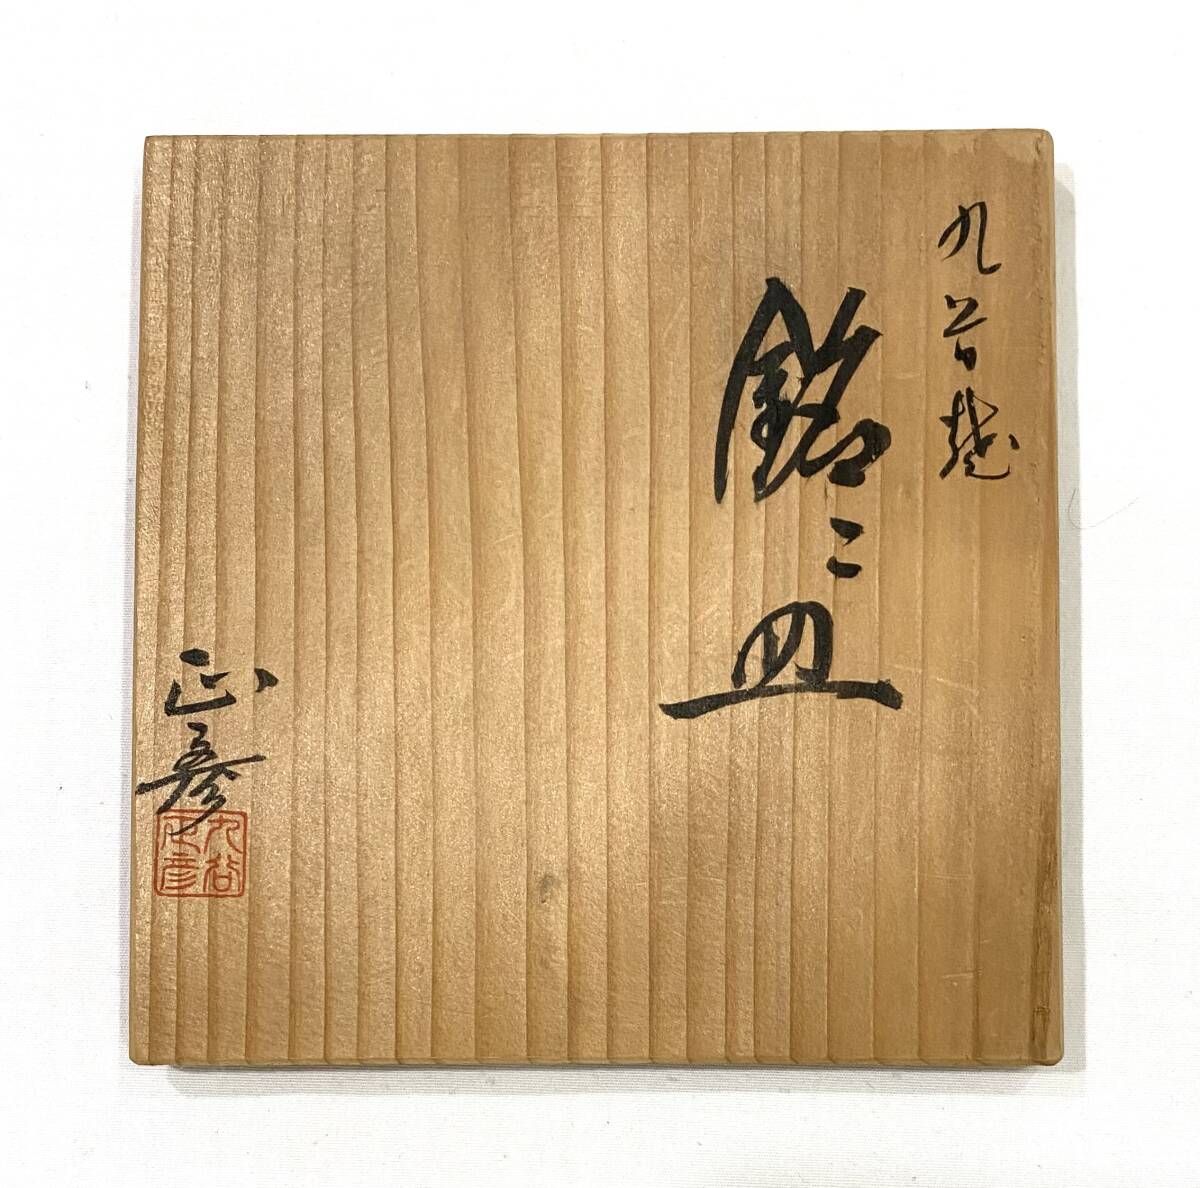 九谷焼
銘々皿
正彦
九谷
正彦